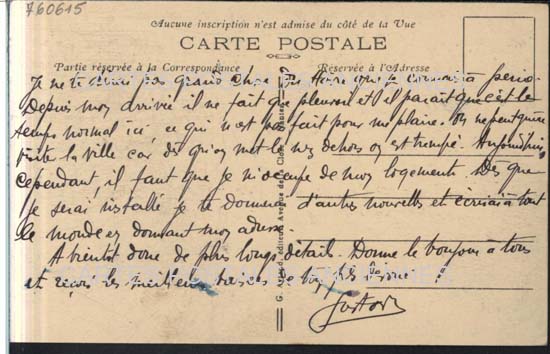 760615
Aucune inscription n'est admise du côté de la Vue
CARTE POSTALE
Partie réservée à la Correspondance
Réservée à l'Adresse
Je ne te dirai pas grand chose du que je connais à peine.
Depuis mon arrivée il ne fait que pleuvoir et il parait que c'est le
temps normal ici, ce qui n'est pas fait pour me plaire. On ne peut guère
visiter la ville car dès qu'on met le nez dehors on est trempé. Aujourd'hui,
cependant, il faut que je m'occupe de mon logement. Dès que
je serai installé je te donnerai d'autres nouvelles et écrirai à tout
le monde en donnant mon adresse.
A bientôt donc de plus longs détails. Donne le bonjour à tous
et reçois les meilleurs baisers de ton fils